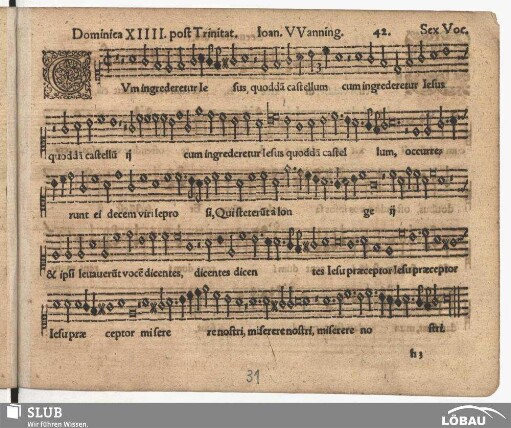 Dominica XIIII. post Trinitat. Ioan. VVanning. 42. Sex Voc.
CVm ingrederetur Ie sus, quoddā castellum cum ingrederetur Iesus
quoddā castellū ij cum ingrederetur Iesus quoddā castel lum, occurre
runt ei decem viri lepro si, Qui steterūt à lon ge ij
& ipsi leuauerūt vocē dicentes, dicentes dicen tes Iesu præceptor Iesu præceptor
Iesu præ ceptor misere re nostri, miserere nostri, miserere no stri.
h 3
31
SLUB
Wir führen Wissen.
LÖBAU